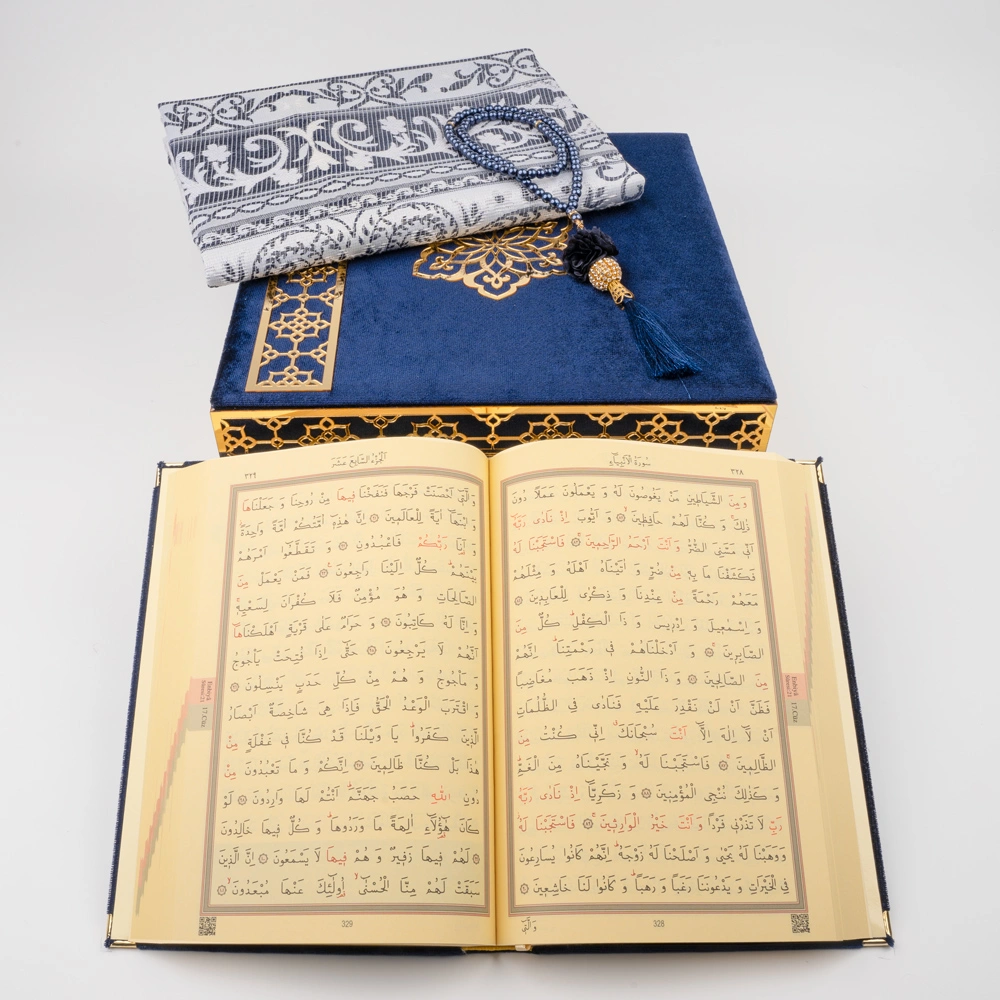 سُورَةُ الْاَنْبِيَاءِ
٣٢٨
وَمِنَ الشَّيَاطِينِ مَنْ يَغُوصُونَ لَهُ وَ يَعْمَلُونَ عَمَلًا دُونَ
ذٰلِكَۚ وَ كُنَّا لَهُمْ حَافِظِينَۙ ۞ وَ اَيُّوبَ اِذْ نَادٰى رَبَّهُٓ
اَنِّى مَسَّنِىَ الضُّرُّ وَ اَنْتَ اَرْحَمُ الرَّاحِمِينَۚ ۞ فَاسْتَجَبْنَا لَهُ
فَكَشَفْنَا مَا بِهِ مِنْ ضُرٍّ وَ اٰتَيْنَاهُ اَهْلَهُ وَ مِثْلَهُمْ
مَعَهُمْ رَحْمَةً مِنْ عِنْدِنَا وَ ذِكْرٰى لِلْعَابِدِينَ ۞
وَ اِسْمٰعِيلَ وَ اِدْرِيسَ وَ ذَا الْكِفْلِۜ كُلٌّ مِنَ
الصَّابِرِينَۚ ۞ وَ اَدْخَلْنَاهُمْ فِى رَحْمَتِنَاۜ اِنَّهُمْ
مِنَ الصَّالِحِينَ ۞ وَ ذَا النُّونِ اِذْ ذَهَبَ مُغَاضِبًا
فَظَنَّ اَنْ لَنْ نَقْدِرَ عَلَيْهِ فَنَادٰى فِى الظُّلُمَاتِ
اَنْ لَٓا اِلٰهَ اِلَّٓا اَنْتَ سُبْحَانَكَۗ اِنِّى كُنْتُ مِنَ
الظَّالِمِينَۚ ۞ فَاسْتَجَبْنَا لَهُۙ وَ نَجَّيْنَاهُ مِنَ الْغَمِّۜ
وَ كَذٰلِكَ نُنْجِى الْمُؤْمِنِينَ ۞ وَ زَكَرِيَّٓا اِذْ نَادٰى رَبَّهُ
رَبِّ لَا تَذَرْنِى فَرْدًا وَ اَنْتَ خَيْرُ الْوَارِثِينَۚ ۞ فَاسْتَجَبْنَا لَهُۘ
وَ وَهَبْنَا لَهُ يَحْيٰى وَ اَصْلَحْنَا لَهُ زَوْجَهُۜ اِنَّهُمْ كَانُوا يُسَارِعُونَ
فِى الْخَيْرَاتِ وَ يَدْعُونَنَا رَغَبًا وَ رَهَبًاۜ وَ كَانُوا لَنَا خَاشِعِينَ ۞
وَ الَّتِى
328
Enbiyâ
Sûresi/21
17.Cüz
الْجُزْءُ السَّابِعَ عَشَرَ
٣٢٩
وَ الَّتِٓى اَحْصَنَتْ فَرْجَهَا فَنَفَخْنَا فِيهَا مِنْ رُوحِنَا وَ جَعَلْنَاهَا
وَ ابْنَهَٓا اٰيَةً لِلْعَالَمِينَ ۞ اِنَّ هٰذِهِٓ اُمَّتُكُمْ اُمَّةً وَاحِدَةًۘ
وَ اَنَا رَبُّكُمْ فَاعْبُدُونِ ۞ وَ تَقَطَّعُٓوا اَمْرَهُمْ
بَيْنَهُمْۜ كُلٌّ اِلَيْنَا رَاجِعُونَۚ ۞ فَمَنْ يَعْمَلْ مِنَ
الصَّالِحَاتِ وَ هُوَ مُؤْمِنٌ فَلَا كُفْرَانَ لِسَعْيِهِۚ
وَ اِنَّا لَهُ كَاتِبُونَ ۞ وَ حَرَامٌ عَلٰى قَرْيَةٍ اَهْلَكْنَاهَٓا
اَنَّهُمْ لَا يَرْجِعُونَ ۞ حَتّٰٓى اِذَا فُتِحَتْ يَأْجُوجُ
وَ مَأْجُوجُ وَ هُمْ مِنْ كُلِّ حَدَبٍ يَنْسِلُونَ ۞
وَ اقْتَرَبَ الْوَعْدُ الْحَقُّ فَاِذَا هِىَ شَاخِصَةٌ اَبْصَارُ
الَّذِينَ كَفَرُواۜ يَا وَيْلَنَا قَدْ كُنَّا فِى غَفْلَةٍ مِنْ
هٰذَا بَلْ كُنَّا ظَالِمِينَ ۞ اِنَّكُمْ وَ مَا تَعْبُدُونَ مِنْ
دُونِ اللّٰهِ حَصَبُ جَهَنَّمَۜ اَنْتُمْ لَهَا وَارِدُونَ ۞ لَوْ
كَانَ هٰٓؤُلَٓاءِ اٰلِهَةً مَا وَرَدُوهَاۜ وَ كُلٌّ فِيهَا خَالِدُونَ
۞ لَهُمْ فِيهَا زَفِيرٌ وَ هُمْ فِيهَا لَا يَسْمَعُونَ ۞ اِنَّ الَّذِينَ
سَبَقَتْ لَهُمْ مِنَّا الْحُسْنٰٓىۙ اُولٰٓئِكَ عَنْهَا مُبْعَدُونَۙ ۞
329
Enbiyâ
Sûresi/21
17.Cüz